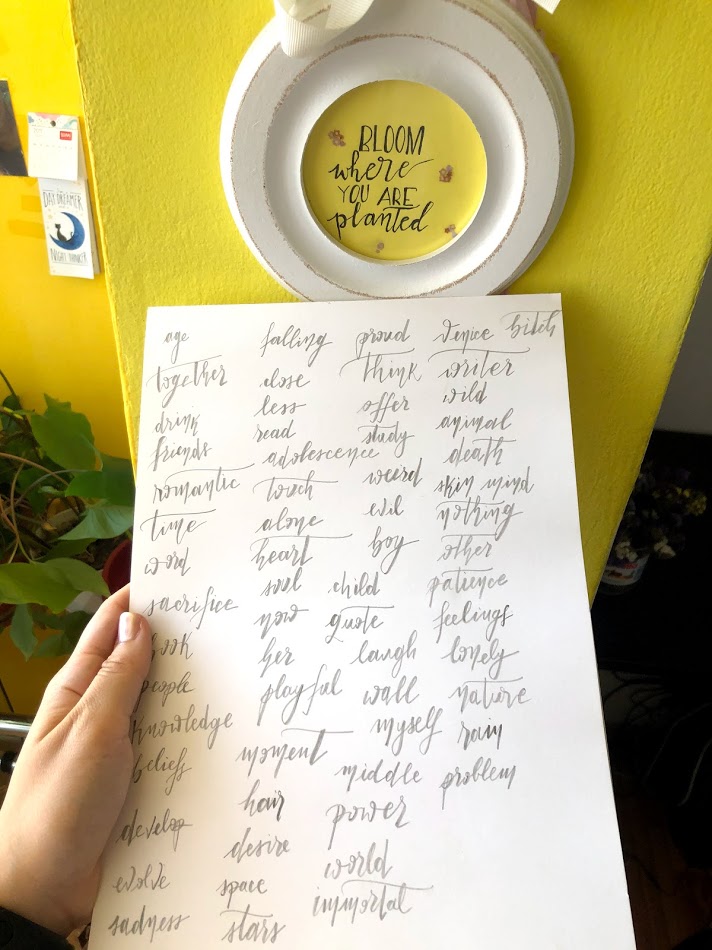 BLOOM
where
YOU ARE
planted
DAY DREAMER
NIGHT THINKER
age
together
drink
friends
romantic
time
word
sacrifice
book
people
knowledge
beliefs
develop
evolve
sadness
falling
close
less
read
adolescence
touch
alone
heart
soul
now
her
playful
moment
hair
desire
space
stars
proud
think
offer
study
weird
evil
boy
child
quote
laugh
wall
myself
middle
power
world
immortal
Venice bitch
writer
wild
animal
death
skin mind
nothing
other
patience
feelings
lovely
nature
rain
problem